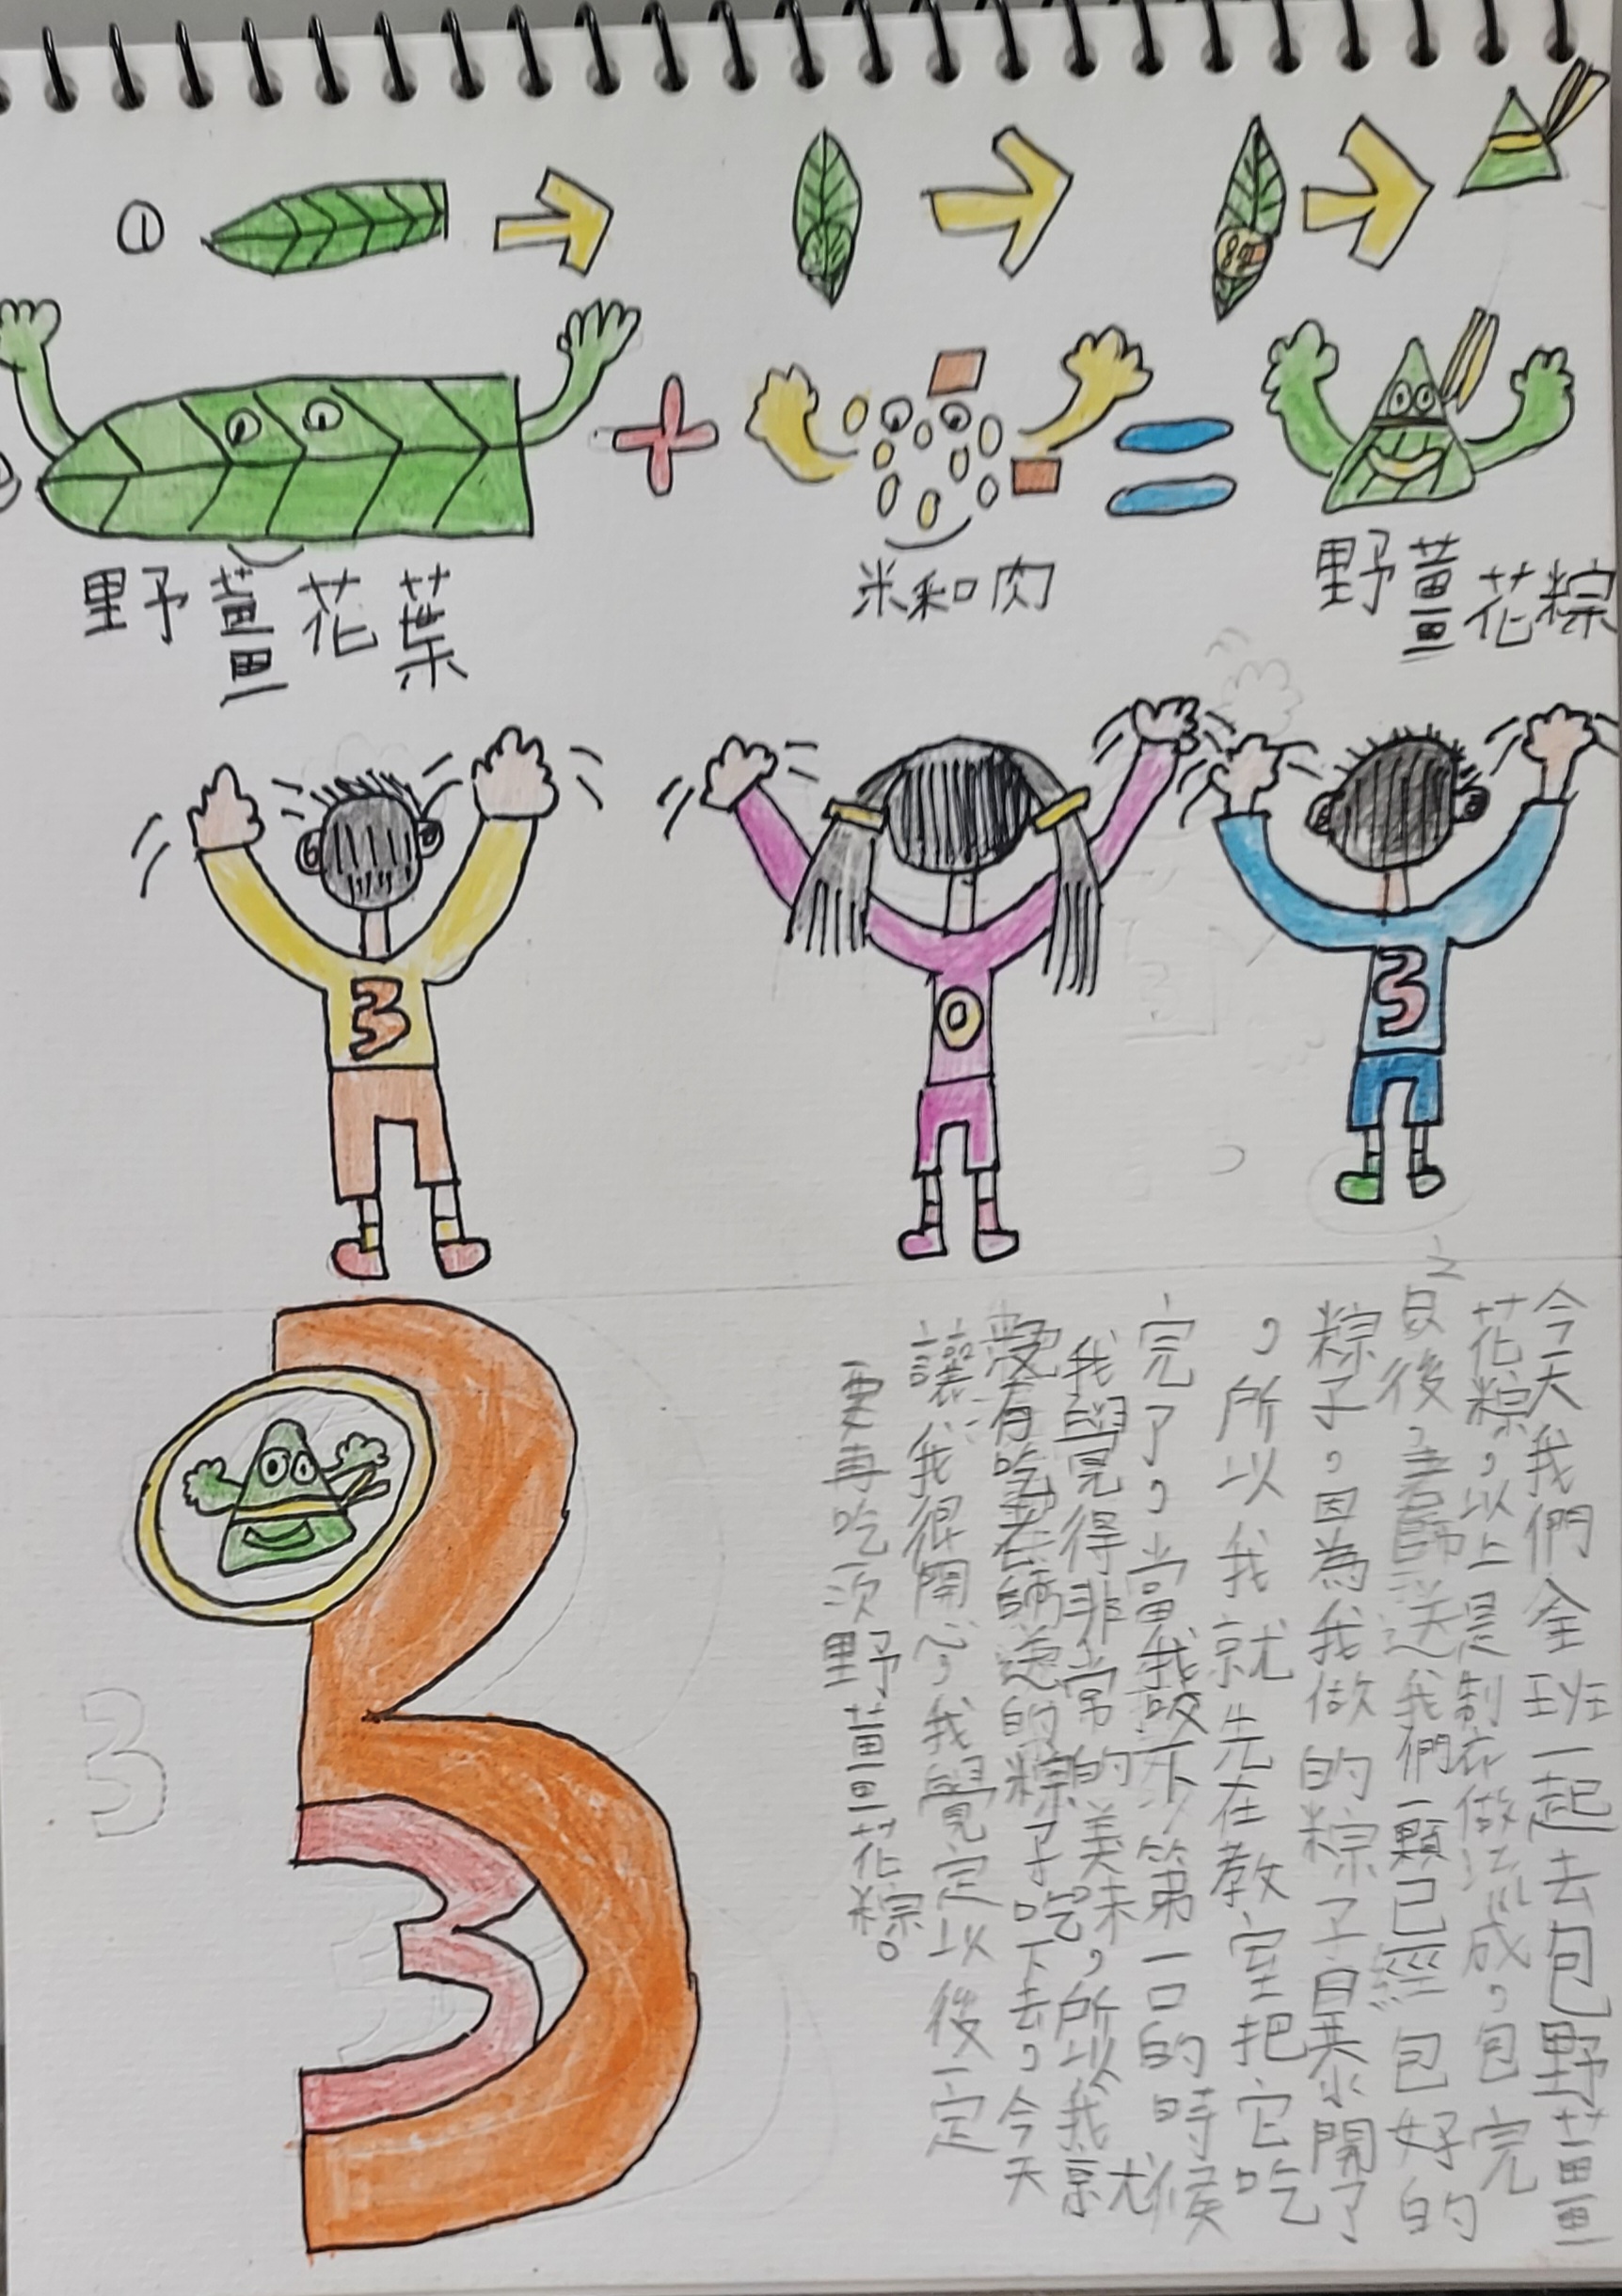 ①
野薑花葉
米和肉
野薑花粽
3
0
3
3
3
3
今天我們全班一起去包野薑
花粽,以上是製做流成,包完
之後,老師送我們一顆已經包好的
粽子。因為我做的粽子暴開了
,所以我就先在教室把它吃
完了,當我咬下第一口的時候
我覺得非常的美味,所以我就
老師送的粽子吃下去,今天
讓我很開心,我覺定以後一定
要再吃次野薑花粽。